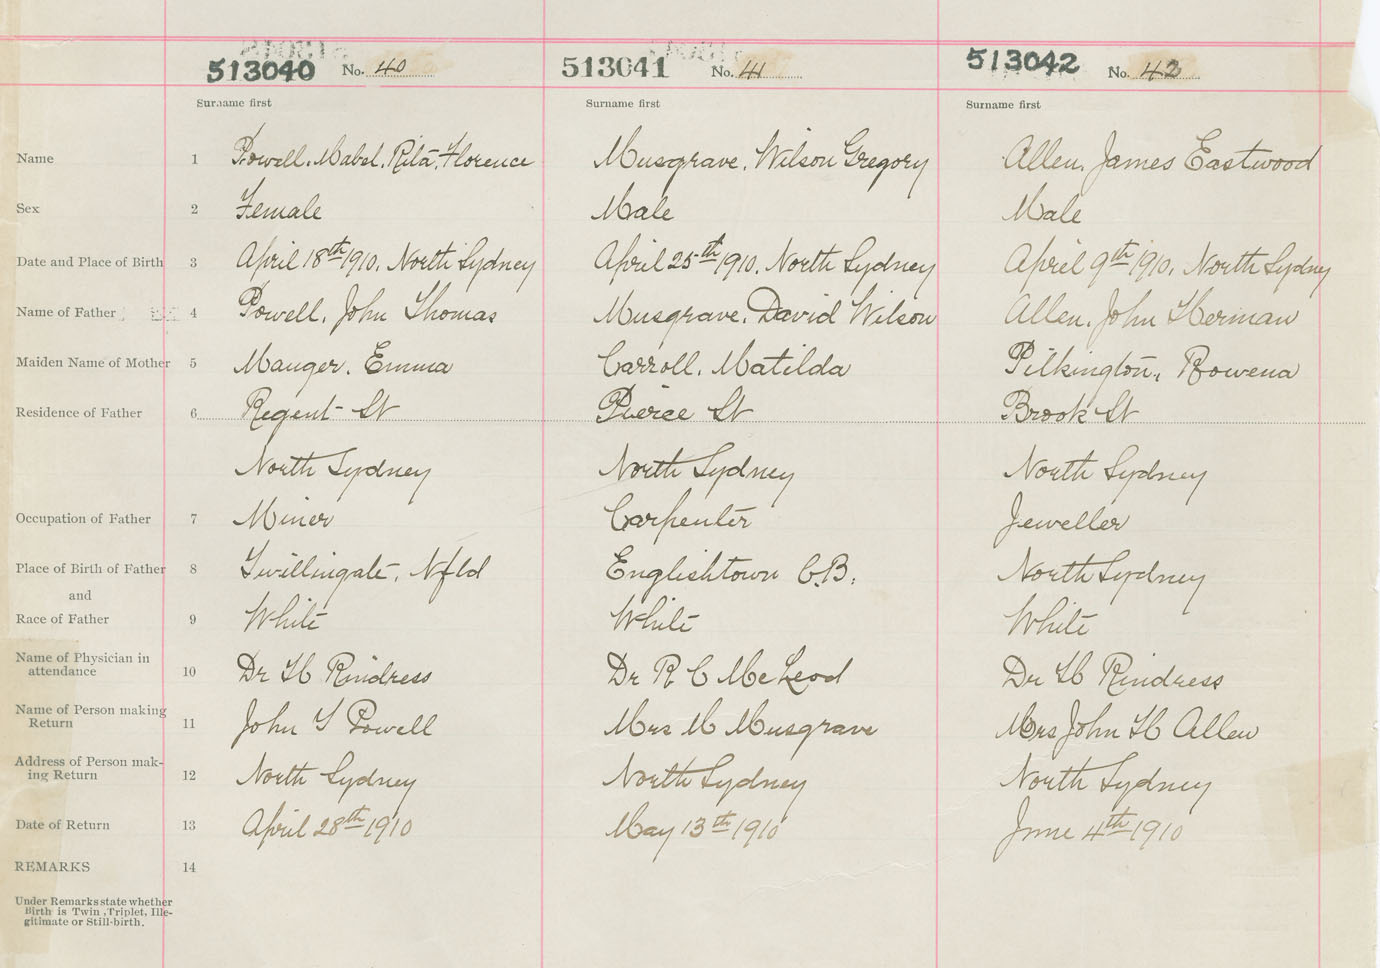 513040 No. 40 513041 No. 41 513042 No. 42
Surname first Surname first Surname first
Name 1 Powell, Mabel, Rita, Florence Musgrave, Wilson Gregory Allen, James Eastwood
Sex 2 Female Male Male
Date and Place of Birth 3 April 18th 1910, North Sydney April 25th 1910, North Sydney April 9th 1910, North Sydney
Name of Father 4 Powell, John Thomas Musgrave, David Wilson Allen, John Herman
Maiden Name of Mother 5 Mauger, Emma Carroll, Matilda Pilkington, Rowena
Residence of Father 6 Regent St Pierce St Brook St
North Sydney North Sydney North Sydney
Occupation of Father 7 Miner Carpenter Jeweller
Place of Birth of Father 8 Twillingate, Nfld Englishtown C.B. North Sydney
and
Race of Father 9 White White White
Name of Physician in
attendance 10 Dr H Rindress Dr R C McLeod Dr H Rindress
Name of Person making
Return 11 John T Powell Mrs M Musgrave Mrs John H Allen
Address of Person mak-
ing Return 12 North Sydney North Sydney North Sydney
Date of Return 13 April 28th 1910 May 13th 1910 June 4th 1910
REMARKS 14
Under Remarks state whether
Birth is Twin, Triplet, Ille-
gitimate or Still-birth.